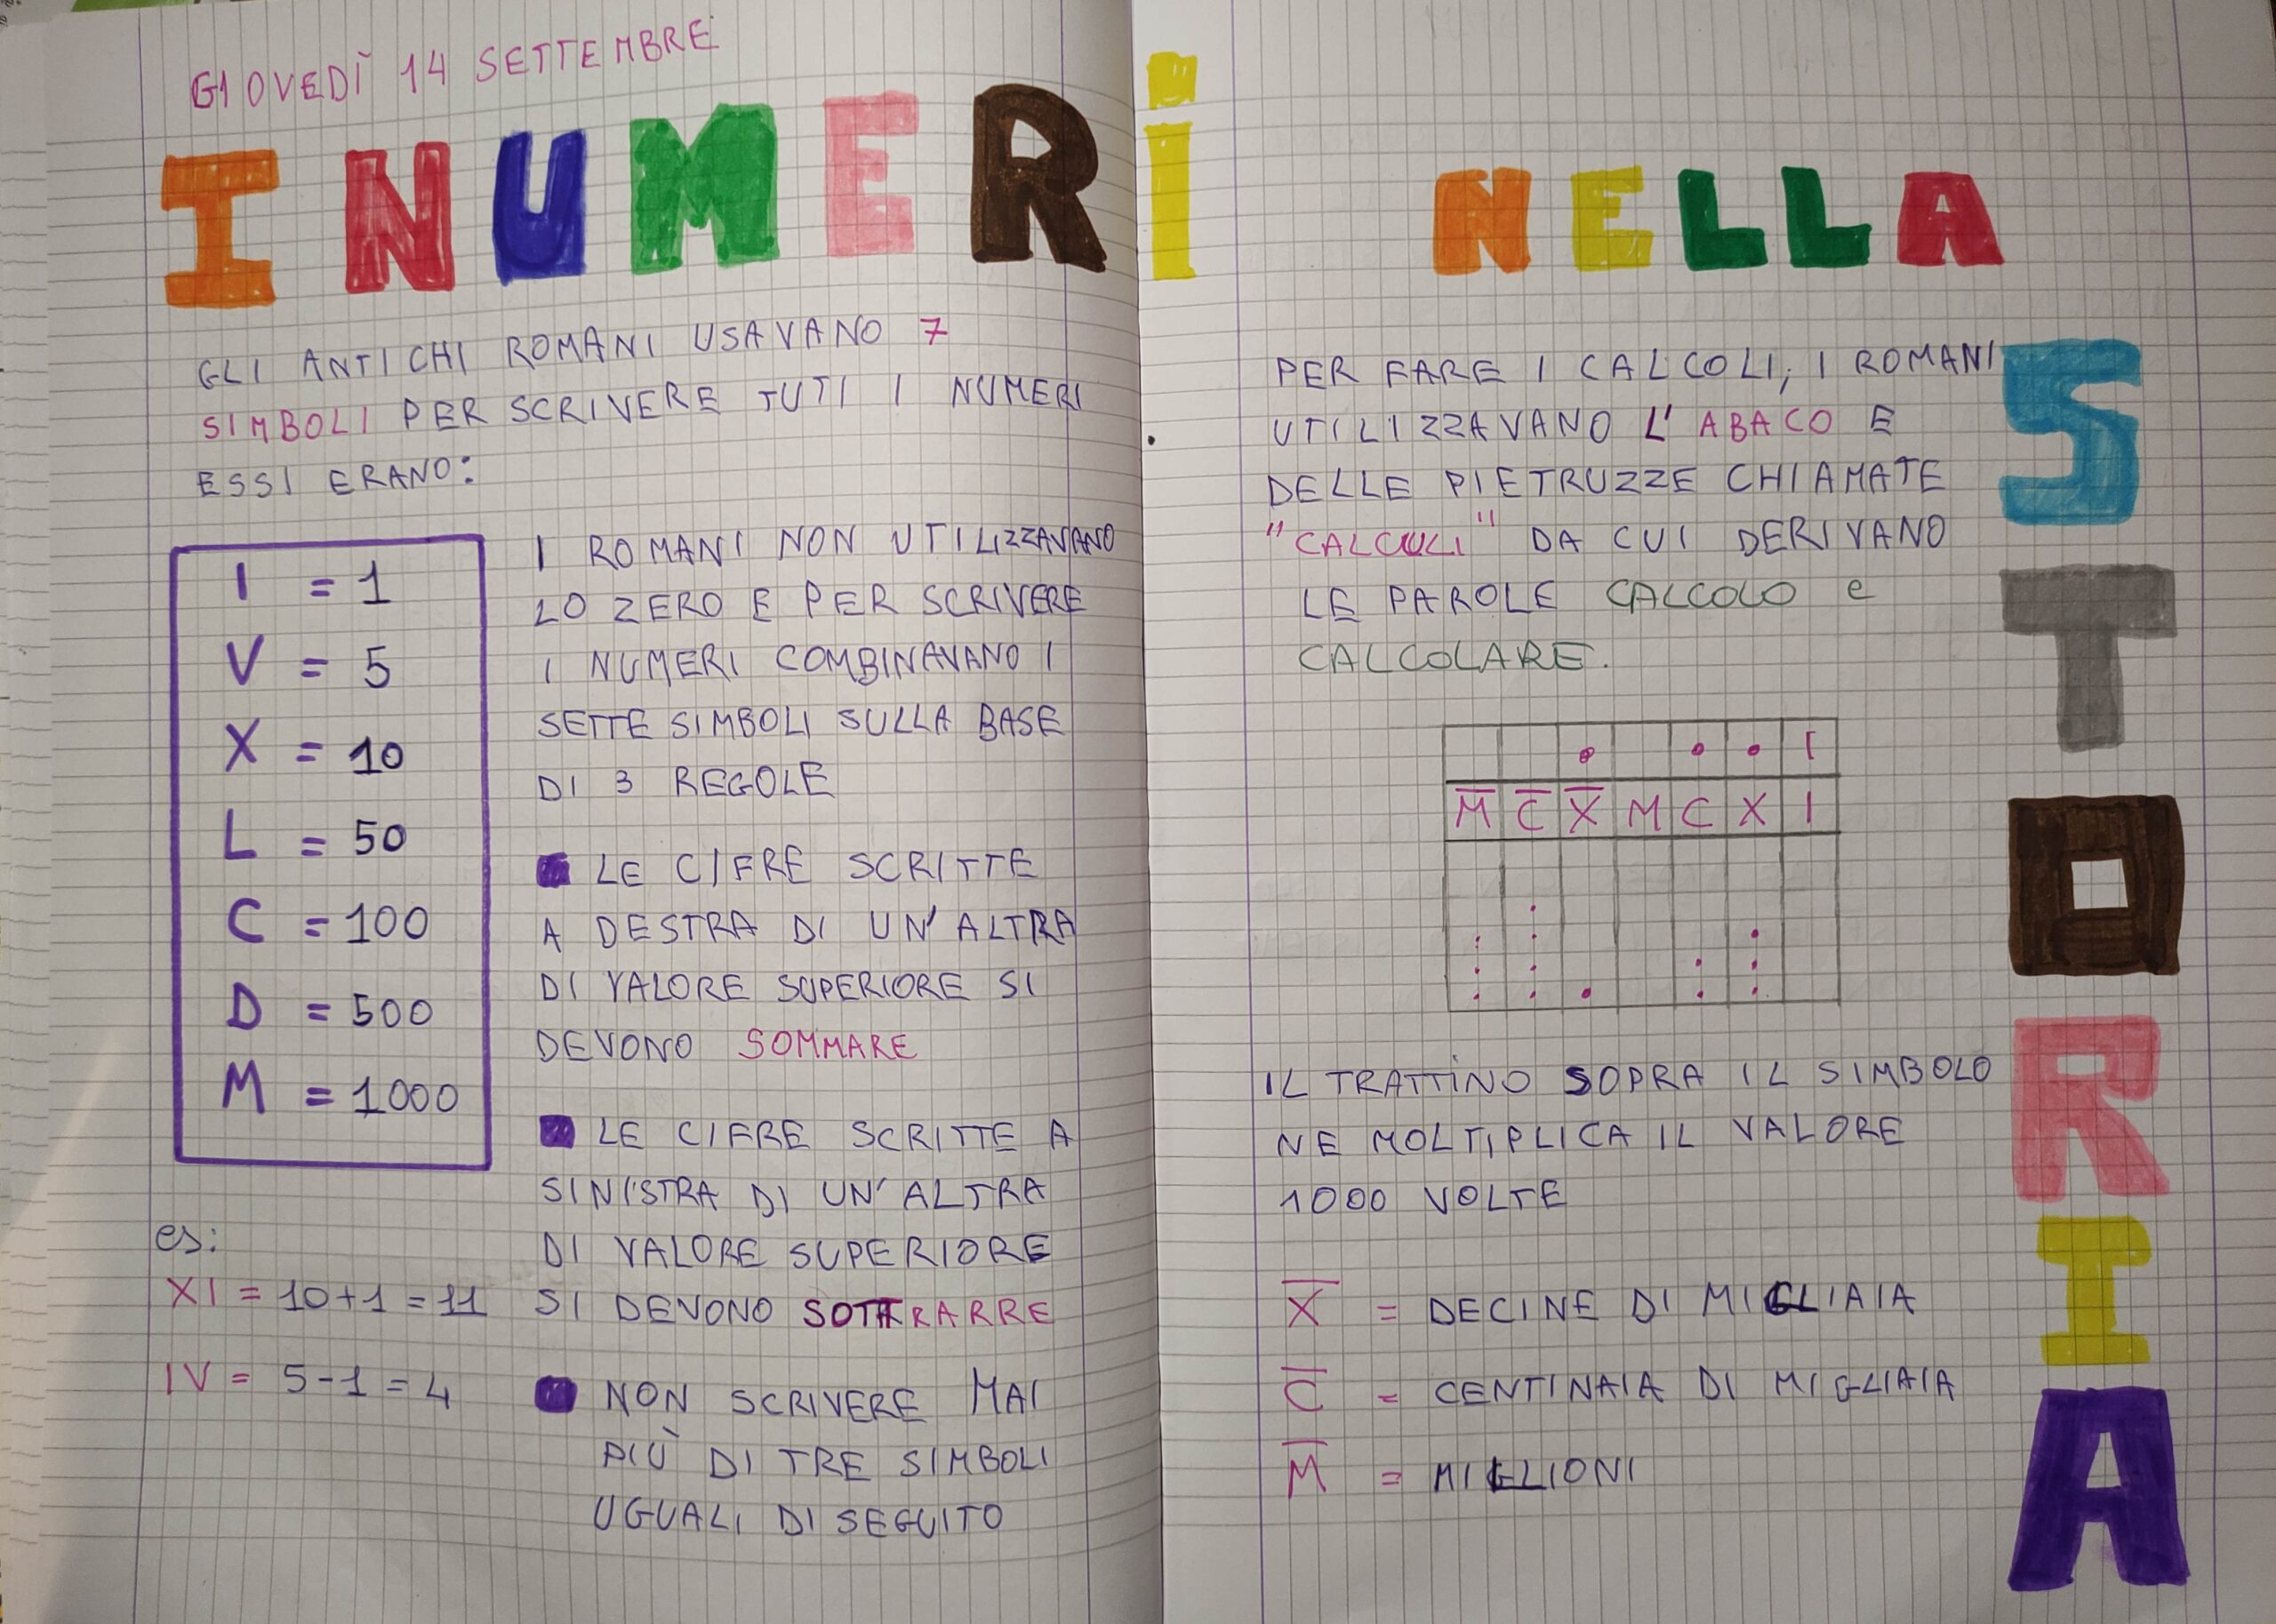 GIOVEDÌ 14 SETTEMBRE
I NUMERI NELLA
STORIA
GLI ANTICHI ROMANI USAVANO 7
SIMBOLI PER SCRIVERE TUTI I NUMERI
ESSI ERANO:
I = 1
V = 5
X = 10
L = 50
C = 100
D = 500
M = 1000
es:
XI = 10+1 = 11
IV = 5-1 = 4
I ROMANI NON UTILIZZAVANO
LO ZERO E PER SCRIVERE
I NUMERI COMBINAVANO I
SETTE SIMBOLI SULLA BASE
DI 3 REGOLE
LE CIFRE SCRITTE
A DESTRA DI UN'ALTRA
DI VALORE SUPERIORE SI
DEVONO SOMMARE
LE CIFRE SCRITTE A
SINISTRA DI UN'ALTRA
DI VALORE SUPERIORE
SI DEVONO SOTTRARRE
NON SCRIVERE MAI
PIÙ DI TRE SIMBOLI
UGUALI DI SEGUITO
PER FARE I CALCOLI, I ROMANI
UTILIZZAVANO L'ABACO E
DELLE PIETRUZZE CHIAMATE
"CALCULI" DA CUI DERIVANO
LE PAROLE CALCOLO e
CALCOLARE.
M̅ C̅ X̅ M C X I
IL TRATTINO SOPRA IL SIMBOLO
NE MOLTIPLICA IL VALORE
1000 VOLTE
X̅ = DECINE DI MIGLIAIA
C̅ = CENTINAIA DI MIGLIAIA
M̅ = MIGLIONI